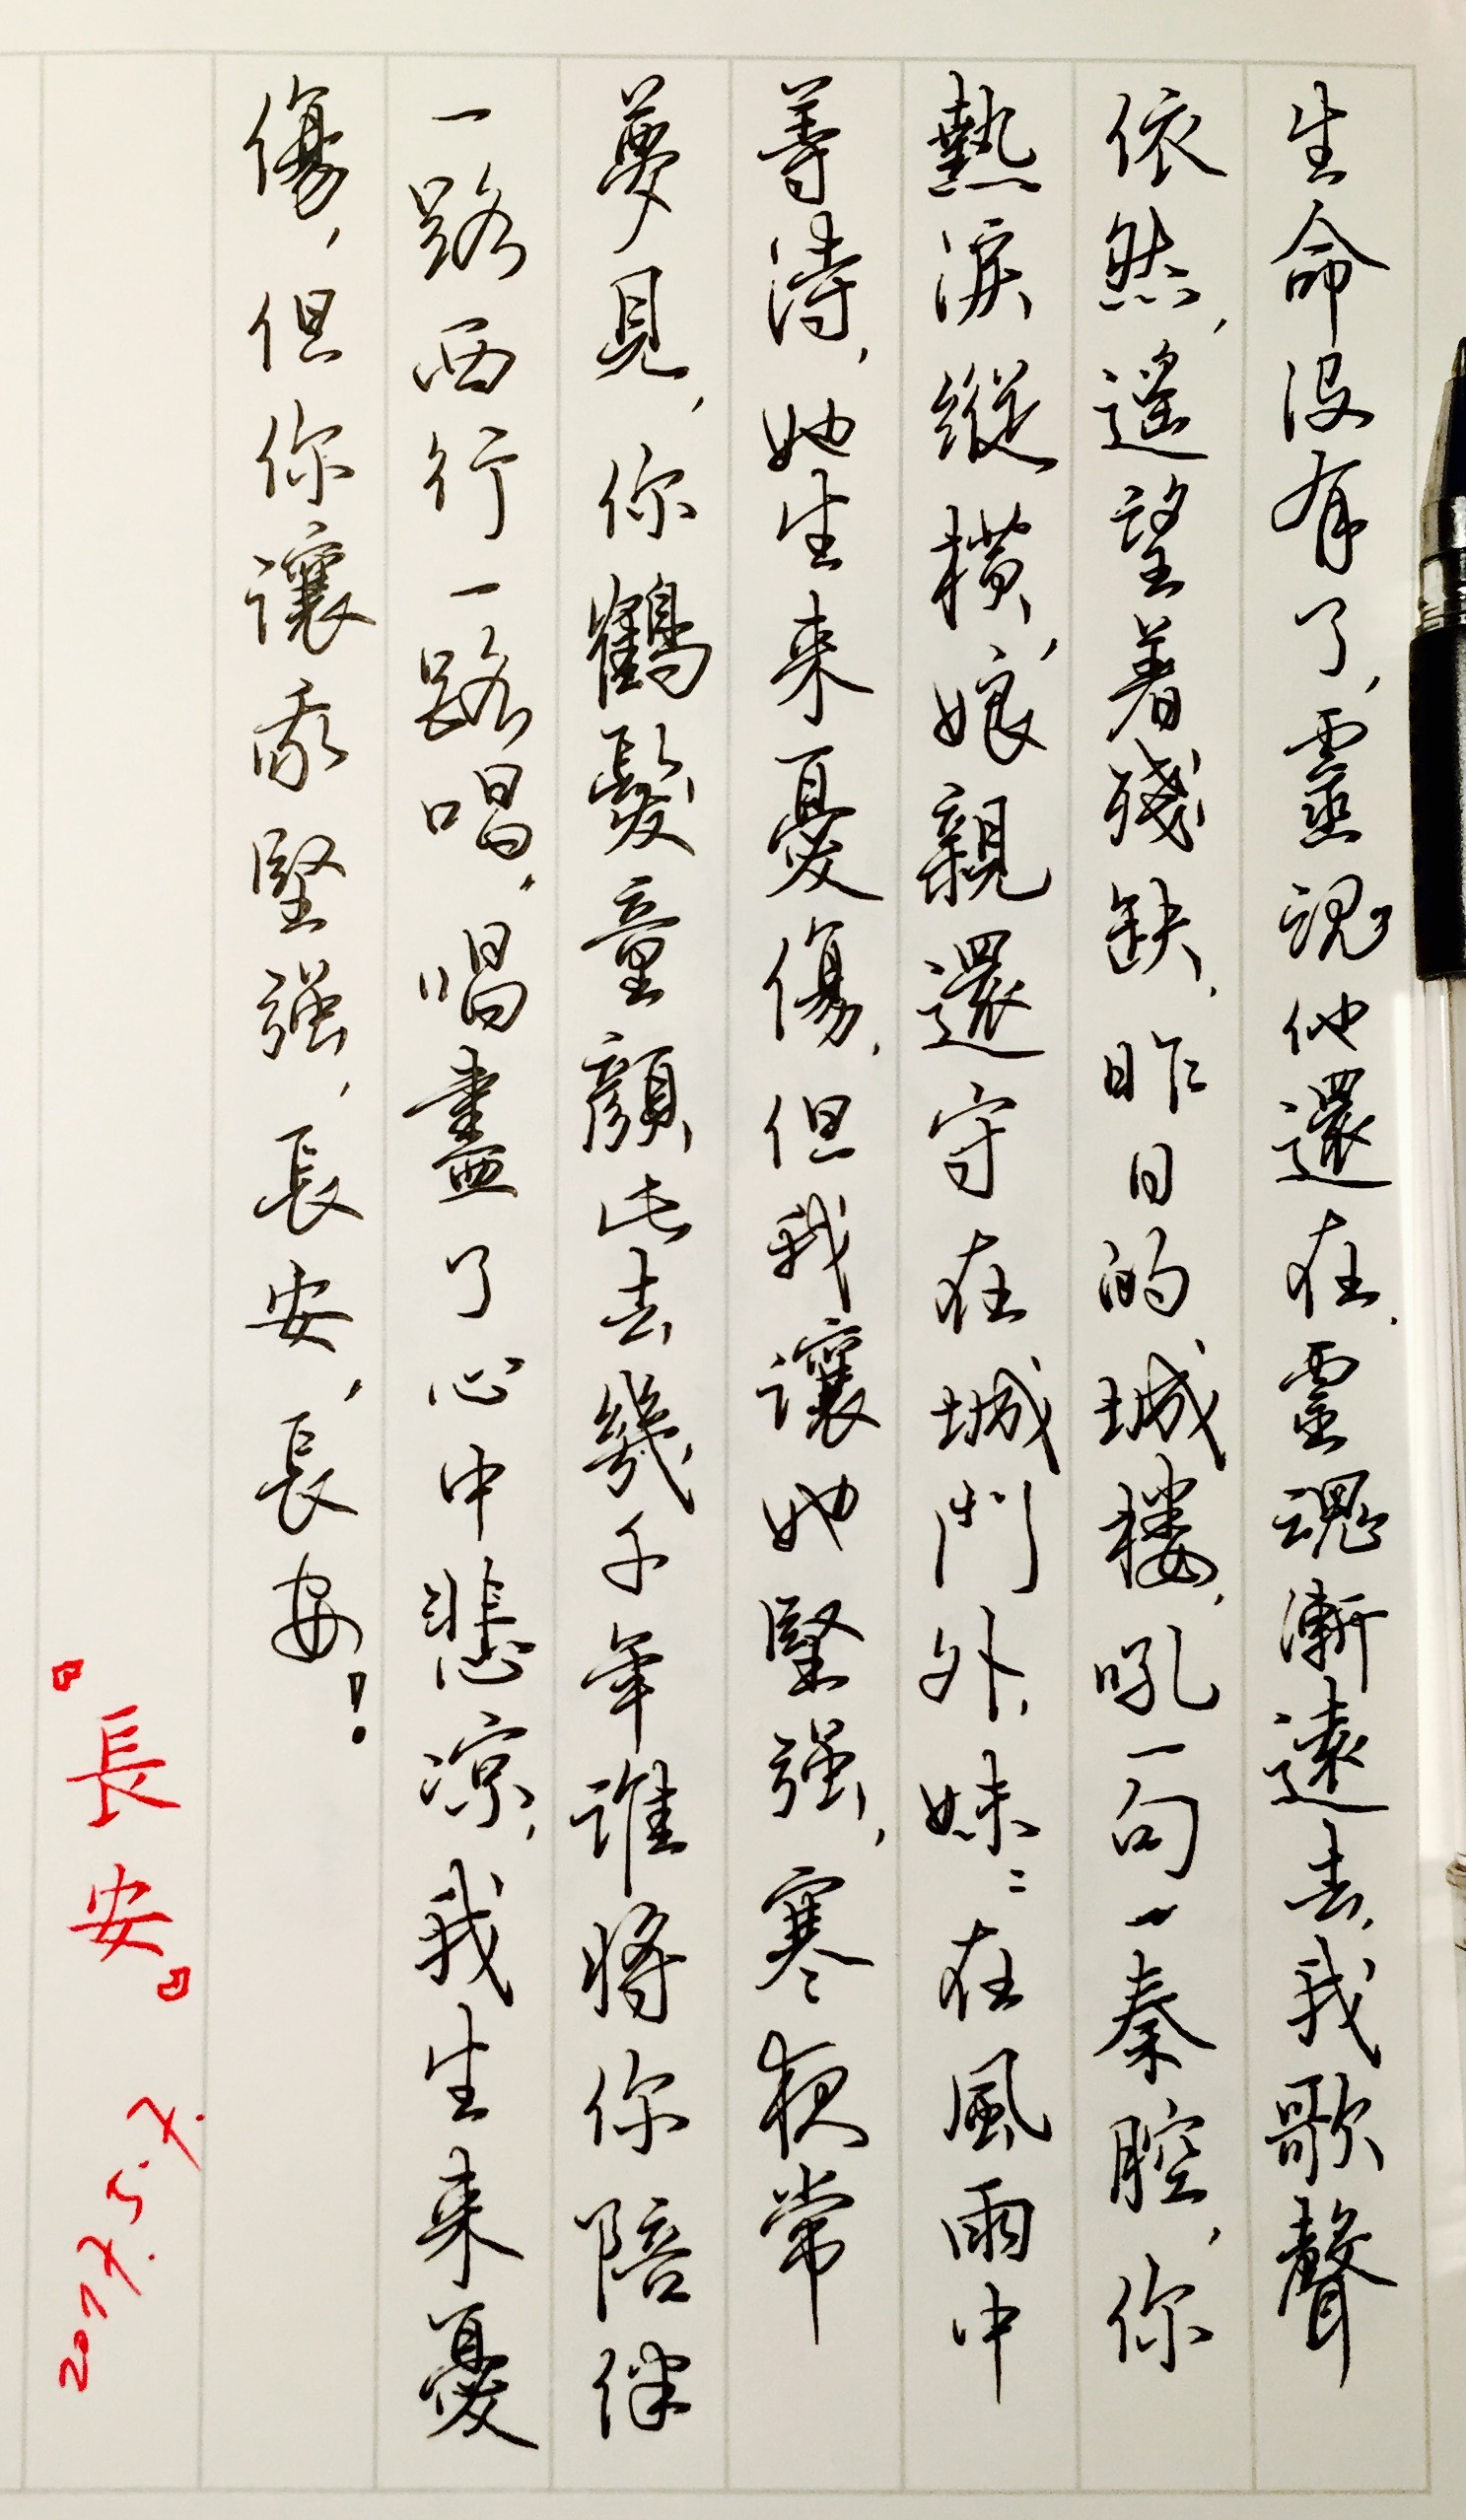 生命没有了，靈魂他還在，靈魂漸遠去，我歌聲
依然，遥望着殘缺，昨日的城楼，吼一句一秦腔，你
熱淚縱横，娘親還守在城門外，妹〻在風雨中
等待，她生来憂傷，但我讓她堅强，寒夜常
夢見，你鶴髮童顔此去幾千年誰將你陪伴
一路西行一路唱，唱盡了心中悲凉，我生来憂
傷，但你讓我堅强，長安，長安！
『長安』 2017.5.7.